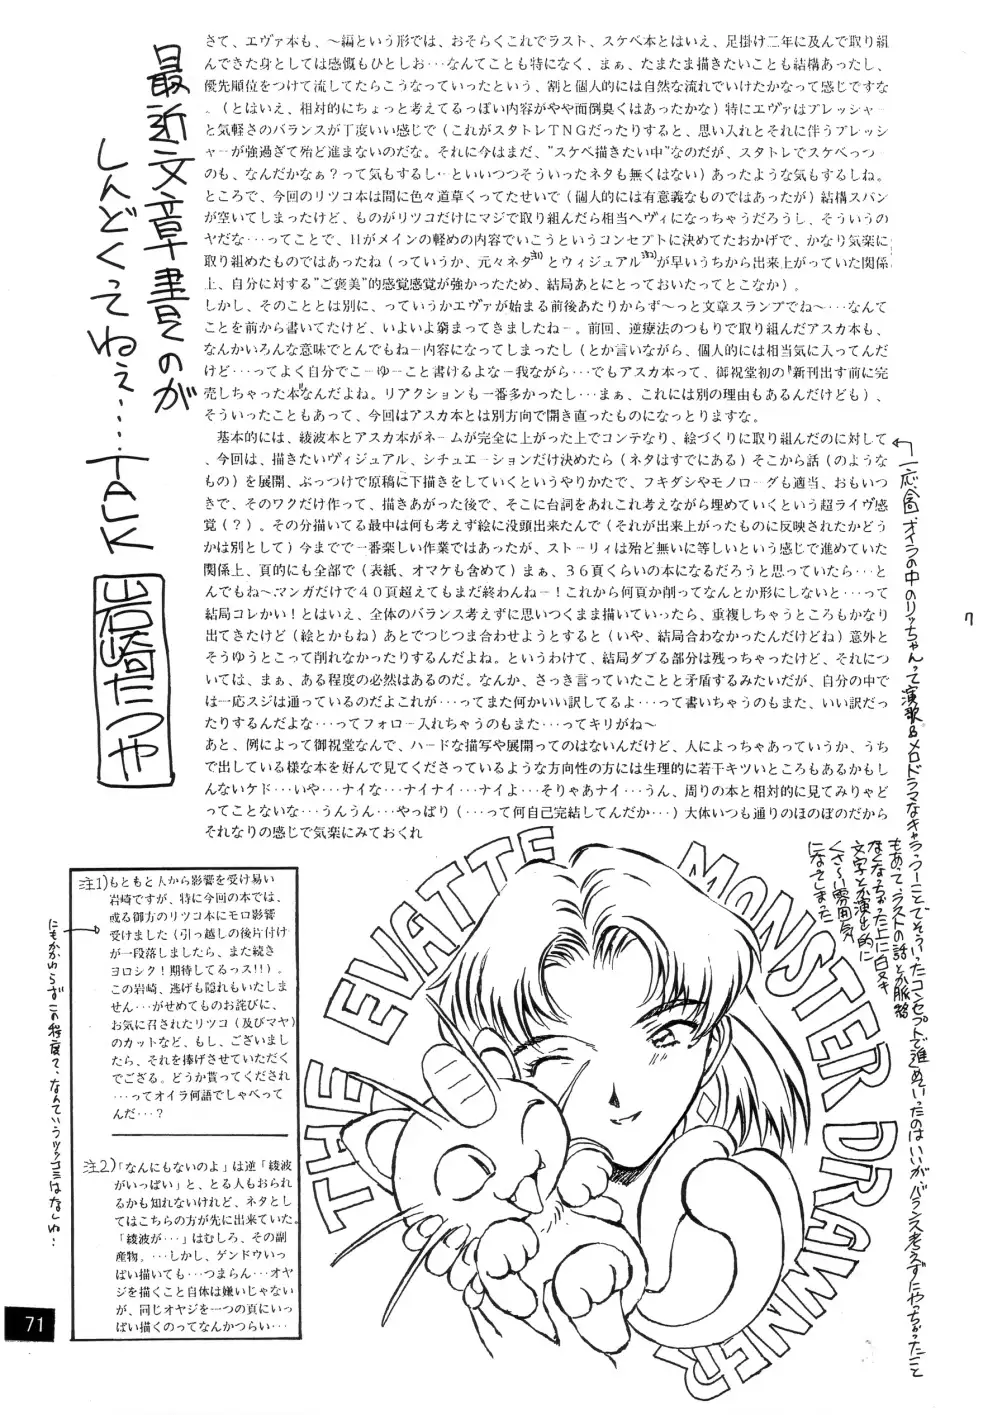 最近文章書くのが
しんどくってねぇ…TALK
岩崎たつや
さて、エヴァ本も、〜編という形では、おそらくこれでラスト、スケベ本とはいえ、足掛け二年に及んで取り組
んできた身としては感慨もひとしお…なんてことも特になく、まぁ、たまたま描きたいことも結構あったし、
優先順位をつけて流してたらこうなっていったという、割と個人的には自然な流れでいけたかなって感じですな
。(とはいえ、相対的にちょっと考えてるっぽい内容がやや面倒臭くはあったかな)特にエヴァはプレッシャー
と気軽さのバランスが丁度いい感じで(これがスタトレTNGだったりすると、思い入れとそれに伴うプレッシ
ャーが強過ぎて殆ど進まないのだな。それに今はまだ、"スケベ描きたい中"なのだが、スタトレでスケベっつー
のも、なんだかなぁ?って気もするし…といいつつそういったネタも無くはない)あったような気もするしね。
ところで、今回のリツコ本は間に色々道草くってたせいで(個人的には有意義なものではあったが)結構スパン
が空いてしまったけど、ものがリツコだけにマジで取り組んだら相当ヘヴィになっちゃうだろうし、そういうの
ヤだな…ってことで、Hがメインの軽めの内容でいこうというコンセプトに決めてたおかげで、かなり気楽に
取り組めたものではあったね(っていうか、元々ネタ注1)とヴィジュアル注2)が早いうちから出来上がっていた関係
上、自分に対する"ご褒美"的感覚感覚が強かったため、結局あとにとっておいたってとこなか)。
しかし、そのこととは別に、っていうかエヴァが始まる前後あたりからず〜っと文章スランプでね〜…なんて
ことを前から書いてたけど、いよいよ窮まってきましたねー。前回、逆療法のつもりで取り組んだアスカ本も、
なんかいろんな意味でとんでもねー内容になってしまったし(とか言いながら、個人的には相当気に入ってんだ
けど…ってよく自分でこーゆーこと書けるよなー我ながら…でもアスカ本って、御祝堂初の"新刊出す前に完
売しちゃった本"なんだよね。リアクションも一番多かったし…まぁ、これには別の理由もあるんだけども)、
そういったこともあって、今回はアスカ本とは別方向で開き直ったものになっとりますな。
基本的には、綾波本とアスカ本がネームが完全に上がった上でコンテなり、絵づくりに取り組んだのに対して
、今回は、描きたいヴィジュアル、シチュエーションだけ決めたら(ネタはすでにある)そこから話(のような
もの)を展開、ぶっつけで原稿に下描きをしていくというやりかたで、フキダシやモノローグも適当、おもいつ
きで、そのワクだけ作って、描きあがった後で、そこに台詞をあれこれ考えながら埋めていくという超ライヴ感
覚(?)。その分描いてる最中は何も考えず絵に没頭出来たんで(それが出来上がったものに反映されたかどう
かは別として)今までで一番楽しい作業ではあったが、ストーリィは殆ど無いに等しいという感じで進めていた
関係上、頁的にも全部で(表紙、オマケも含めて)まぁ、36頁くらいの本になるだろうと思っていたら…と
んでもね〜、マンガだけで40頁超えてもまだ終わんねー!これから何頁か削ってなんとか形にしないと…って
結局コレかい!とはいえ、全体のバランス考えずに思いつくまま描いていったら、重複しちゃうところもかなり
出てきたけど(絵とかもね)あとでつじつま合わせようとすると(いや、結局合わなかったんだけどね)意外と
そうゆうとこって削れなかったりするんだよね。というわけで、結局ダブる部分は残っちゃったけど、それにつ
いては、まぁ、ある程度の必然はあるのだ。なんか、さっき言っていたことと矛盾するみたいだが、自分の中で
は一応スジは通っているのだよこれが…ってまた何かいい訳してるよ…って書いちゃうのもまた、いい訳だっ
たりするんだよな…ってフォロー入れちゃうのもまた…ってキリがね〜
あと、例によって御祝堂なんで、ハードな描写や展開ってのはないんだけど、人によっちゃあっていうか、うち
で出している様な本を好んで見てくださっているような方向性の方には生理的に若干キツいところもあるかもし
んないケド…いや…ナイな…ナイナイ…ナイよ…そりゃあナイ…うん、周りの本と相対的に見てみりゃど
ってことないな…うんうん…やっぱり(…って何自己完結してんだか…)大体いつも通りのほのぼのだから
それなりの感じで気楽にみておくれ
←一応今回、オイラの中のりっちゃんって演歌&メロドラマなキャラつーことでそういったコンセプトで進めていったのはいいが、バランス考えずにやっちゃったこと
もあって、ラストの話とか脈絡
なくなっちゃった上に白ヌキ
文字とか演出的に
くさ〜い雰囲気
になってしまった
注1)もともと人から影響を受け易い
岩崎ですが、特に今回の本では、
或る御方のリツコ本にモロ影響
受けました(引っ越しの後片付け
が一段落しましたら、また続き
ヨロシク!期待してるっス!!)。
この岩崎、逃げも隠れもいたしま
せん…がせめてものお詫びに、
お気に召されたリツコ(及びマヤ)
のカットなど、もし、ございまし
たら、それを捧げさせていただく
でござる。どうか貰ってくだされ
…ってオイラ何語でしゃべって
んだ…?
注2)「なんにもないのよ」は逆「綾波
がいっぱい」と、とる人もおられ
るかも知れないけれど、ネタとし
てはこちらの方が先に出来ていた。
「綾波が…」はむしろ、その副
産物。…しかし、ゲンドウいっ
ぱい描いても…つまらん…オヤ
ジを描くこと自体は嫌いじゃない
が、同じオヤジを一つの頁にいっ
ぱい描くのってなんかつらい…
にもかかわらずこの程度?、なんていうツッコミはなしね…
THE EVATTE MONSTER DRAWNER
71
7